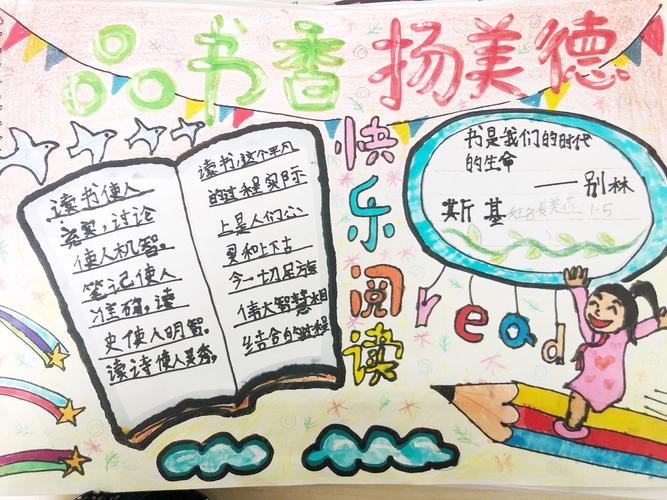 品书香 扬美德
读书使人
充实,讨论
使人机智。
笔记使人
准确,读
史使人明智。
读诗使人灵秀。
读书这个平凡
的过程实际
上是人们心
灵和上下古
今一切民族
伟大智慧相
结合的过程
快乐阅读
书是我们的时代
的生命
——别林
斯基
1-5
read